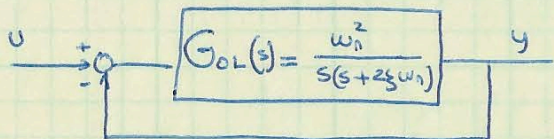 U + - G_OL(s) = ω_n^2 / s(s+2ξω_n) y